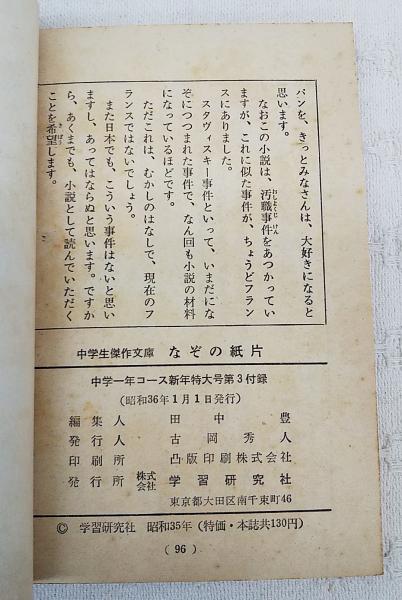 パンを、きっとみなさんは、大好きになると
思います。
なおこの小説は、汚職事件をあつかってい
ますが、これに似た事件が、ちょうどフラン
スにありました。
スタヴィスキー事件といって、いまだにな
ぞにつつまれた事件で、なん回も小説の材料
になっているほどです。
ただこれは、むかしのはなしで、現在のフ
ランスではないでしょう。
また日本でも、こういう事件はないと思い
ますし、あってはならぬと思います。ですか
ら、あくまでも、小説として読んでいただく
ことを希望します。
中学生傑作文庫 なぞの紙片
中学一年コース新年特大号第3付録
(昭和36年1月1日発行)
編集人 田中豊
発行人 古岡秀人
印刷所 凸版印刷株式会社
発行所 株式会社 学習研究社
東京都大田区南千束町46
© 学習研究社 昭和35年 (特価・本誌共130円)
(96)